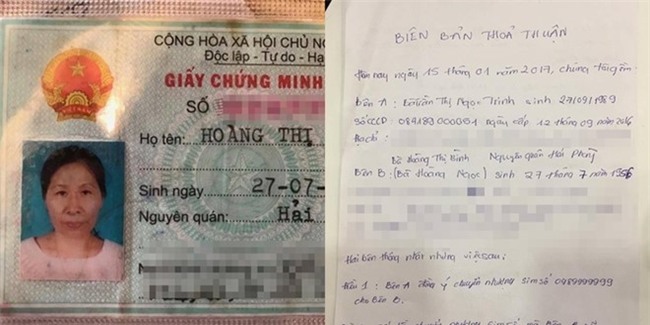 CỘNG HÒA XÃ HỘI CHỦ
Độc lập - Tự do - Hạ
GIẤY CHỨNG MINH
SỐ
Họ tên: HOÀNG THỊ
Sinh ngày 27-07-
Nguyên quán: Hải
VIỆT NAM
BIÊN BẢN THOẢ THUẬN
Hôm nay ngày 15 tháng 01 năm 2017, chúng tôi gồm
Bên A : Trần Thị Ngọc Trinh sinh 27/09/1989
Số CCCD ngày cấp 12 tháng 09 năm 2016
Địa chỉ
Bà Hoàng Thị Bình Nguyên quán Hải Phòng
Bên B : (Bà Hoàng Ngọc) sinh 27 tháng 7 năm 1956
Hai bên thống nhất những việc sau:
Điều 1 : Bên A đồng ý chuyển nhượng sim số 0989999999
cho Bên B.